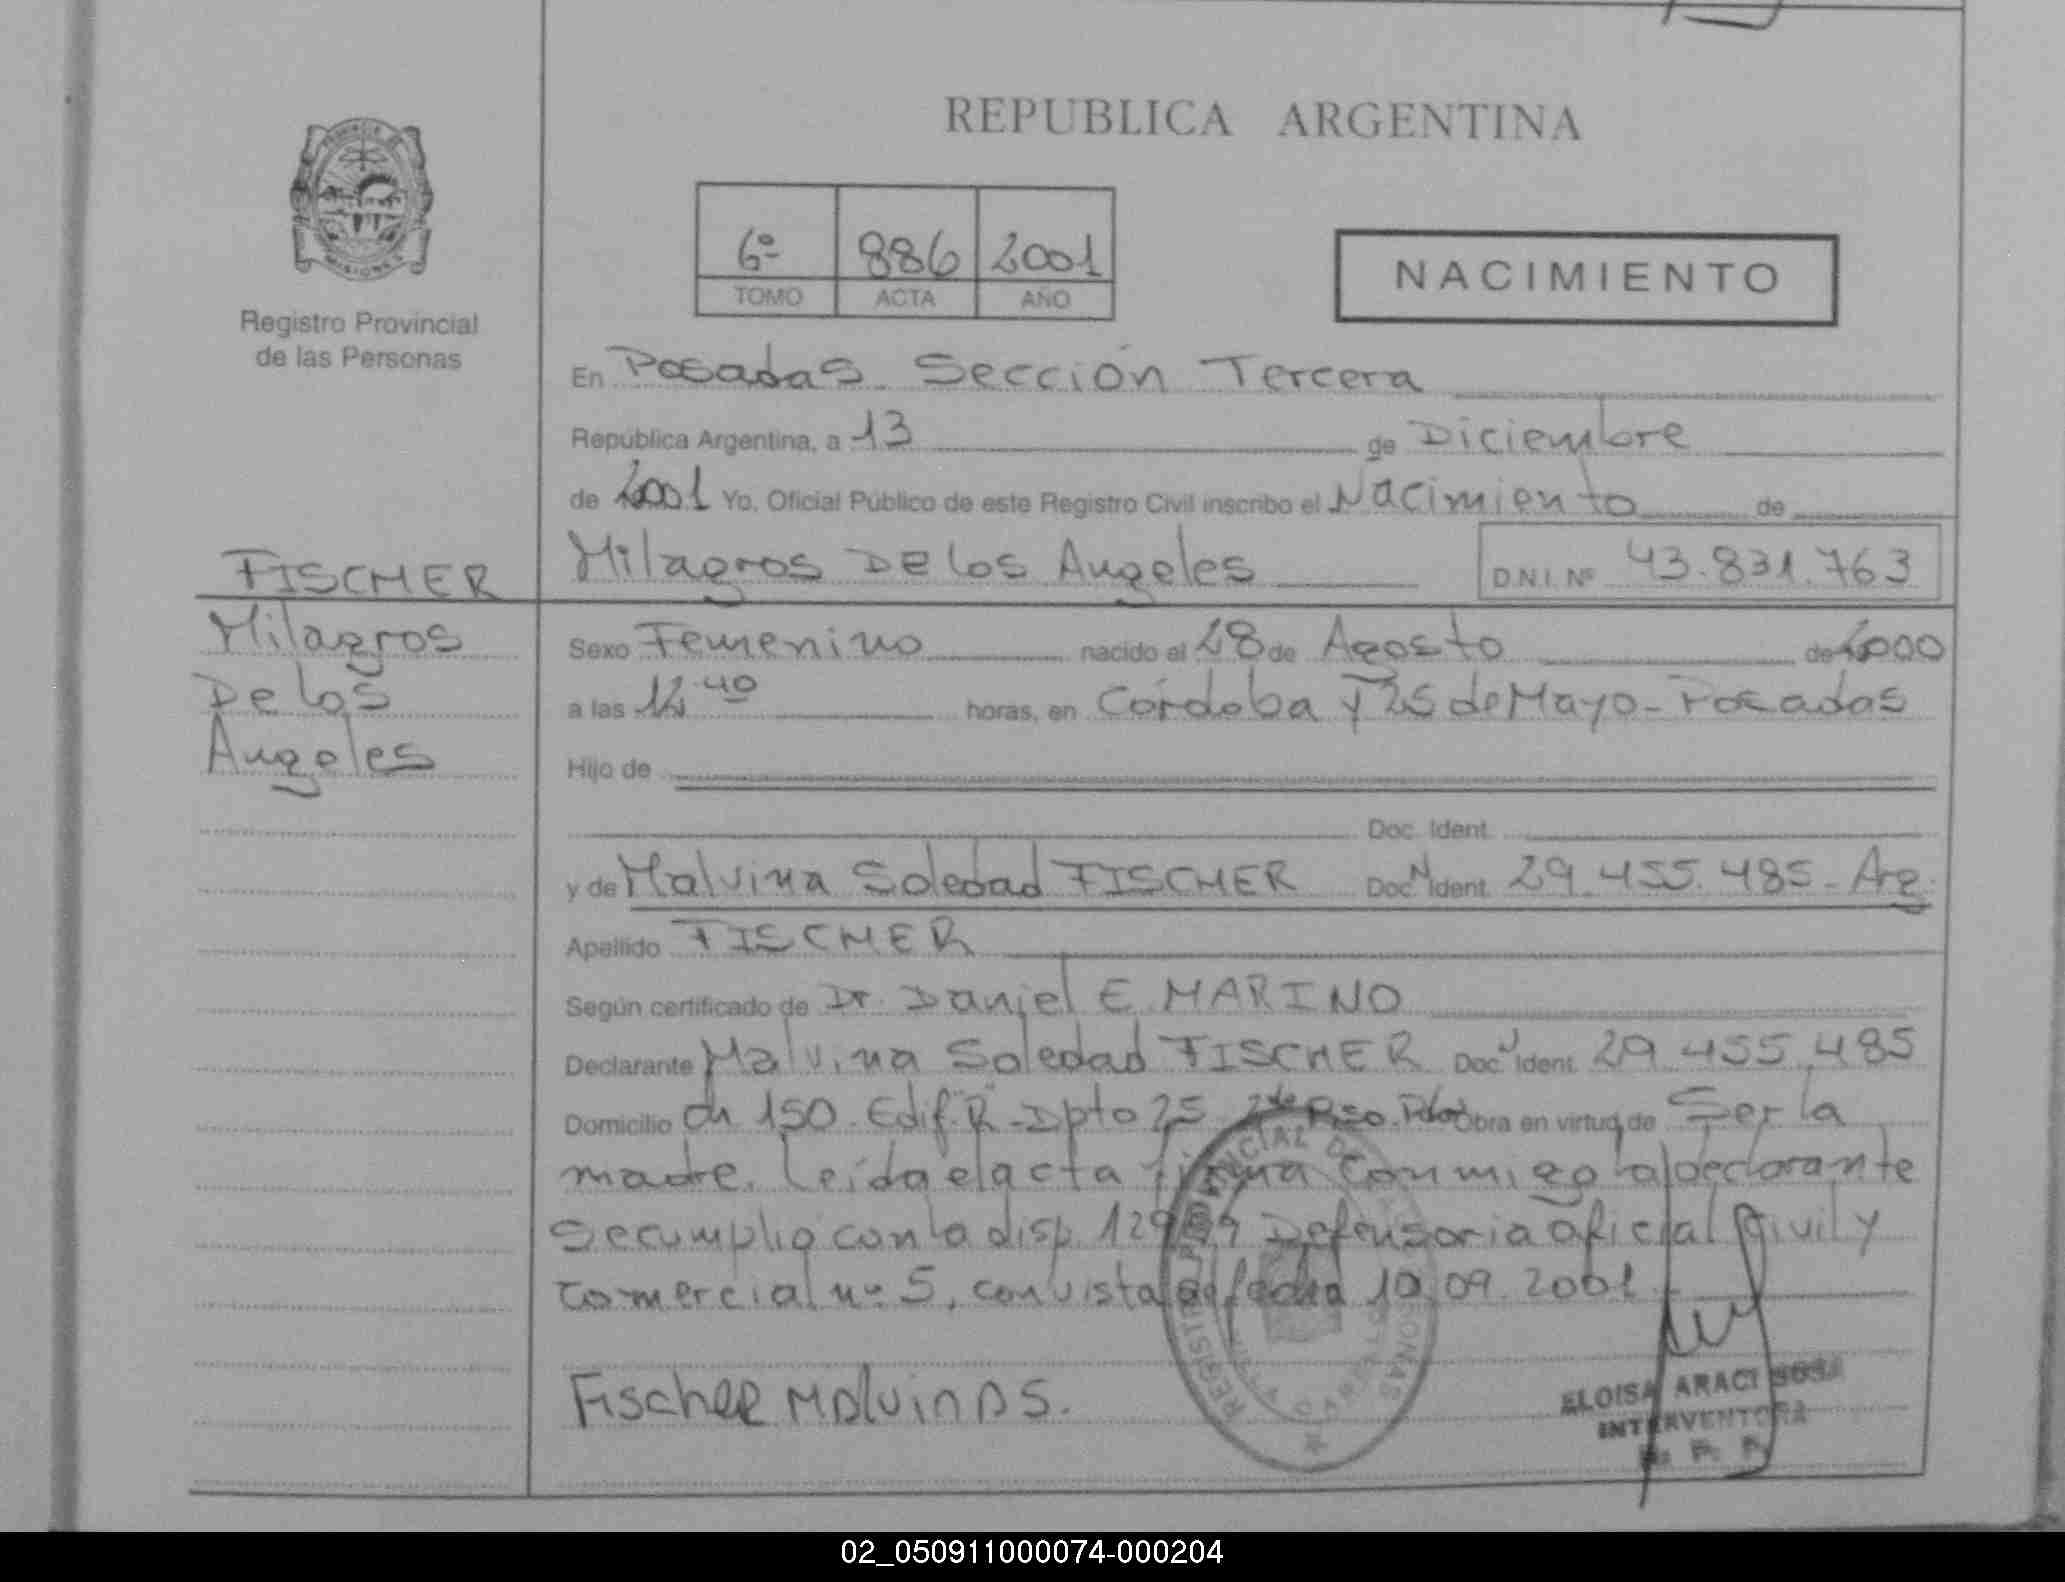 REPUBLICA ARGENTINA
PROVINCIA DE
MISIONES
Registro Provincial
de las Personas
6º 886 2001
TOMO ACTA AÑO
NACIMIENTO
En Posadas. Sección Tercera
República Argentina, a 13 de Diciembre
de 2001 Yo, Oficial Público de este Registro Civil inscribo el Nacimiento de
FISCHER
Milagros De los Angeles D.N.I. Nº 43.831.763
Milagros
De los
Angeles
Sexo Femenino nacido el 28 de Agosto de 2000
a las 12 40 horas, en Córdoba y 25 de Mayo - Posadas
Hijo de
Doc. Ident.
y de Malvina Soledad FISCHER Doc. Ident. 29.455.485 - Arg.
Apellido FISCHER
Según certificado de Dr. Daniel E MARINO
Declarante Malvina Soledad FISCHER Doc. Ident. 29.455.485
Domicilio ch 150. Edif. "R" - Dpto 25 Piso. Obra en virtud de Ser la
madre. Leída el acta firma conmigo la declarante
Se cumplió con la disp. Defensoria oficial Civil y
Comercial nº 5, con vista de fecha 10.09.2001
Fischer Malvina S.
REGISTRO PROVINCIAL DE PERSONAS
ELOISA ARACI SOSA
INTERVENTORA
R. P. P.
02_050911000074-000204